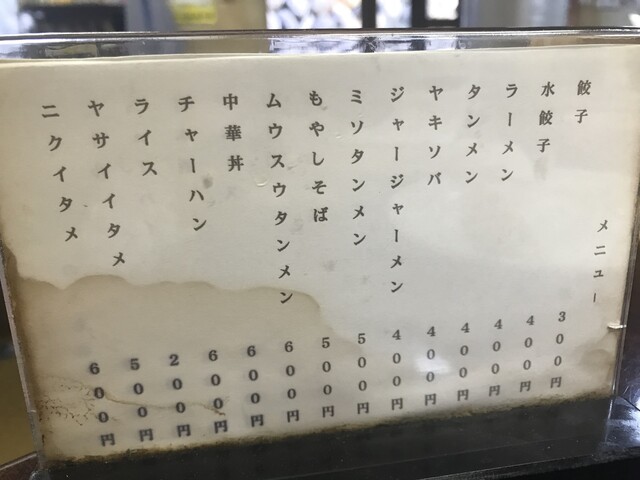 メニュー
餃子 300円
水餃子 400円
ラーメン 400円
タンメン 400円
ヤキソバ 400円
ジャージャーメン 400円
ミソタンメン 500円
もやしそば 500円
ムウスウタンメン 600円
中華丼 600円
チャーハン 600円
ライス 200円
ヤサイイタメ 500円
ニクイタメ 600円